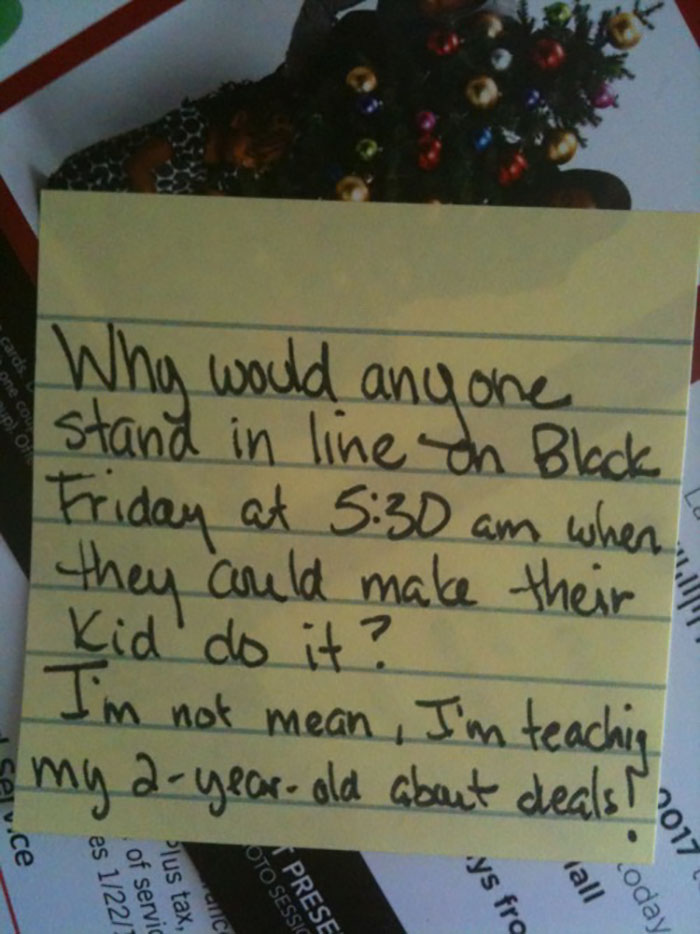 Why would anyone
stand in line on Black
Friday at 5:30 am when
they could make their
Kid do it?
I'm not mean, I'm teachig
my 2-year-old about deals!
cards.
one
plus tax,
of servic
es 1/22/
T PRESE
OTO SESSIO
ys fro
all
today
0017